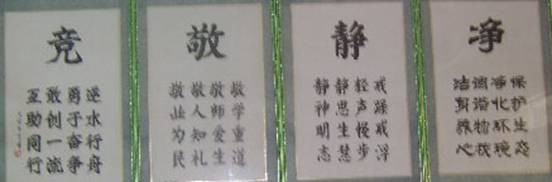 竞
逆水行舟
勇于奋争
敢创一流
互助同行
敬
敬学重道
敬师爱生
敬人知礼
敬业为民
静
戒躁戒浮
轻声慢步
静思生慧
静神明志
净
保护生态
净化环境
调谐物我
洁身养心